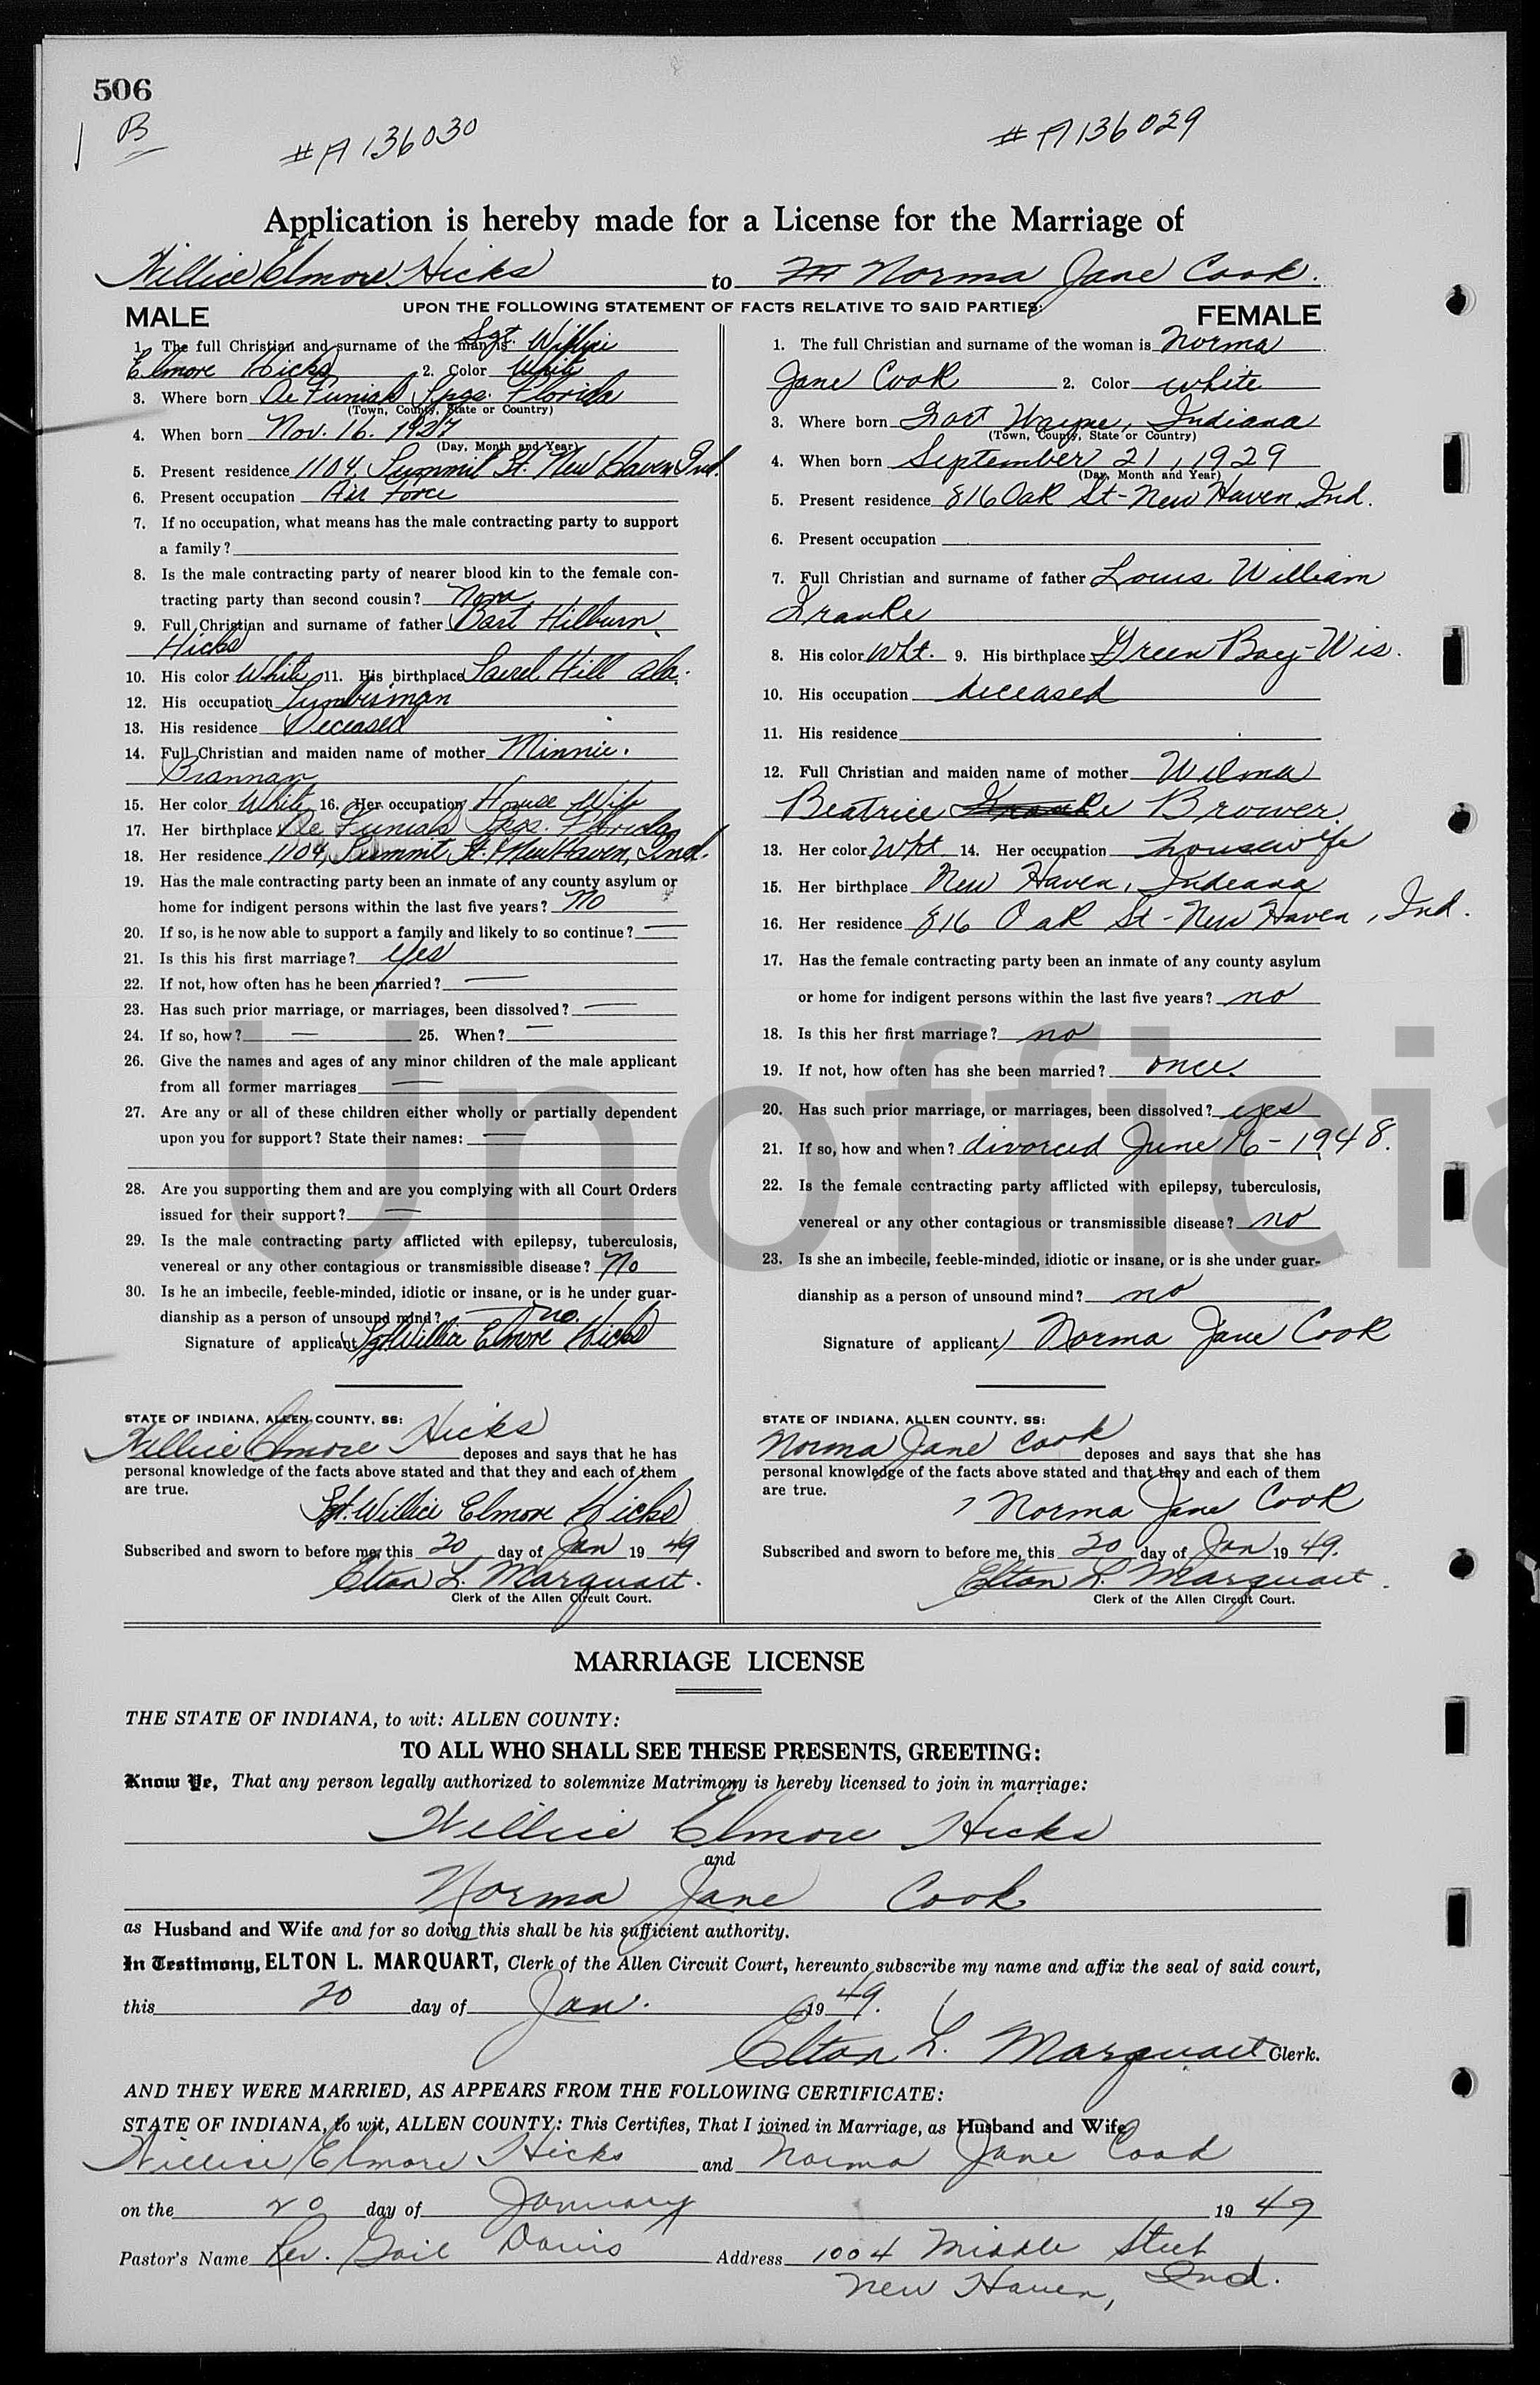 506
B
#A136030
#A136029
Application is hereby made for a License for the Marriage of
Willie Elmore Hicks to Norma Jane Cook.
UPON THE FOLLOWING STATEMENT OF FACTS RELATIVE TO SAID PARTIES:
MALE
1. The full Christian and surname of the man is Sgt. Willie
Elmore Hicks 2. Color White
3. Where born De Funiak Spgs. Florida
(Town, County, State or Country)
4. When born Nov. 16. 1927
(Day, Month and Year)
5. Present residence 1104 Summit St. New Haven Ind.
6. Present occupation Air Force
7. If no occupation, what means has the male contracting party to support
a family?
8. Is the male contracting party of nearer blood kin to the female con-
tracting party than second cousin? None
9. Full Christian and surname of father Bart Hilburn
Hicks
10. His color White 11. His birthplace Hill Ala.
12. His occupation Lumberman
13. His residence Deceased
14. Full Christian and maiden name of mother Minnie.
Brannan
15. Her color White 16. Her occupation House Wife
17. Her birthplace De Funiak Spgs. Florida
18. Her residence 1104 Summit St. New Haven, Ind.
19. Has the male contracting party been an inmate of any county asylum or
home for indigent persons within the last five years? No
20. If so, is he now able to support a family and likely to so continue? —
21. Is this his first marriage? yes
22. If not, how often has he been married? —
23. Has such prior marriage, or marriages, been dissolved? —
24. If so, how? — 25. When? —
26. Give the names and ages of any minor children of the male applicant
from all former marriages —
27. Are any or all of these children either wholly or partially dependent
upon you for support? State their names: —
28. Are you supporting them and are you complying with all Court Orders
issued for their support? —
29. Is the male contracting party afflicted with epilepsy, tuberculosis,
venereal or any other contagious or transmissible disease? No
30. Is he an imbecile, feeble-minded, idiotic or insane, or is he under guar-
dianship as a person of unsound mind? no.
Signature of applicant Sgt Willie Elmore Hicks
STATE OF INDIANA, ALLEN COUNTY, SS:
Willie Elmore Hicks deposes and says that he has
personal knowledge of the facts above stated and that they and each of them
are true.
Sgt. Willie Elmore Hicks
Subscribed and sworn to before me, this 20 day of Jan 1949
Elton L. Marquart.
Clerk of the Allen Circuit Court.
FEMALE
1. The full Christian and surname of the woman is Norma
Jane Cook 2. Color white
3. Where born Fort Wayne, Indiana
(Town, County, State or Country)
4. When born September 21, 1929
(Day, Month and Year)
5. Present residence 816 Oak St - New Haven, Ind.
6. Present occupation
7. Full Christian and surname of father Louis William
Franke
8. His color Wht. 9. His birthplace Green Bay - Wis.
10. His occupation deceased
11. His residence
12. Full Christian and maiden name of mother Wilma
Beatrice Franke Brower.
13. Her color Wht 14. Her occupation housewife
15. Her birthplace New Haven, Indiana
16. Her residence 816 Oak St - New Haven, Ind.
17. Has the female contracting party been an inmate of any county asylum
or home for indigent persons within the last five years? no
18. Is this her first marriage? no
19. If not, how often has she been married? once.
20. Has such prior marriage, or marriages, been dissolved? yes
21. If so, how and when? divorced June 16 - 1948.
22. Is the female contracting party afflicted with epilepsy, tuberculosis,
venereal or any other contagious or transmissible disease? no
23. Is she an imbecile, feeble-minded, idiotic or insane, or is she under guar-
dianship as a person of unsound mind? no
Signature of applicant Norma Jane Cook
STATE OF INDIANA, ALLEN COUNTY, SS:
Norma Jane Cook deposes and says that she has
personal knowledge of the facts above stated and that they and each of them
are true.
Norma Jane Cook
Subscribed and sworn to before me, this 20 day of Jan 1949.
Elton L. Marquart.
Clerk of the Allen Circuit Court.
Unofficia
MARRIAGE LICENSE
THE STATE OF INDIANA, to wit: ALLEN COUNTY:
TO ALL WHO SHALL SEE THESE PRESENTS, GREETING:
Know Ye, That any person legally authorized to solemnize Matrimony is hereby licensed to join in marriage:
Willie Elmore Hicks
and
Norma Jane Cook
as Husband and Wife and for so doing this shall be his sufficient authority.
In Testimony, ELTON L. MARQUART, Clerk of the Allen Circuit Court, hereunto subscribe my name and affix the seal of said court,
this 20 day of Jan. 1949.
Elton L. Marquart Clerk.
AND THEY WERE MARRIED, AS APPEARS FROM THE FOLLOWING CERTIFICATE:
STATE OF INDIANA, to wit, ALLEN COUNTY: This Certifies, That I joined in Marriage, as Husband and Wife
Willie Elmore Hicks and Norma Jane Cook
on the 20 day of January 1949
Pastor's Name Rev. Gail Davis Address 1004 Middle Street
New Haven, Ind.